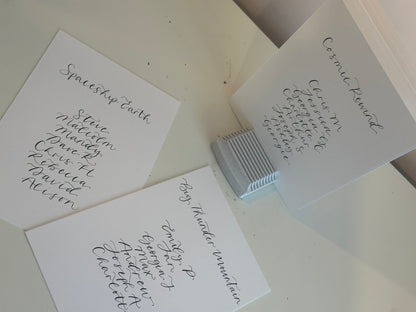 Spaceship Earth
Steve
Malcolm
Mandy
Dave R.
Chris H.
Rebecca
David
Alison
Big Thunder Mountain
Emily P.
Jon J.
Georgia
Max
Andrew
Joseph A
Charlotte
Cosmic Rewind
Chris M.
Jessica
Georgie